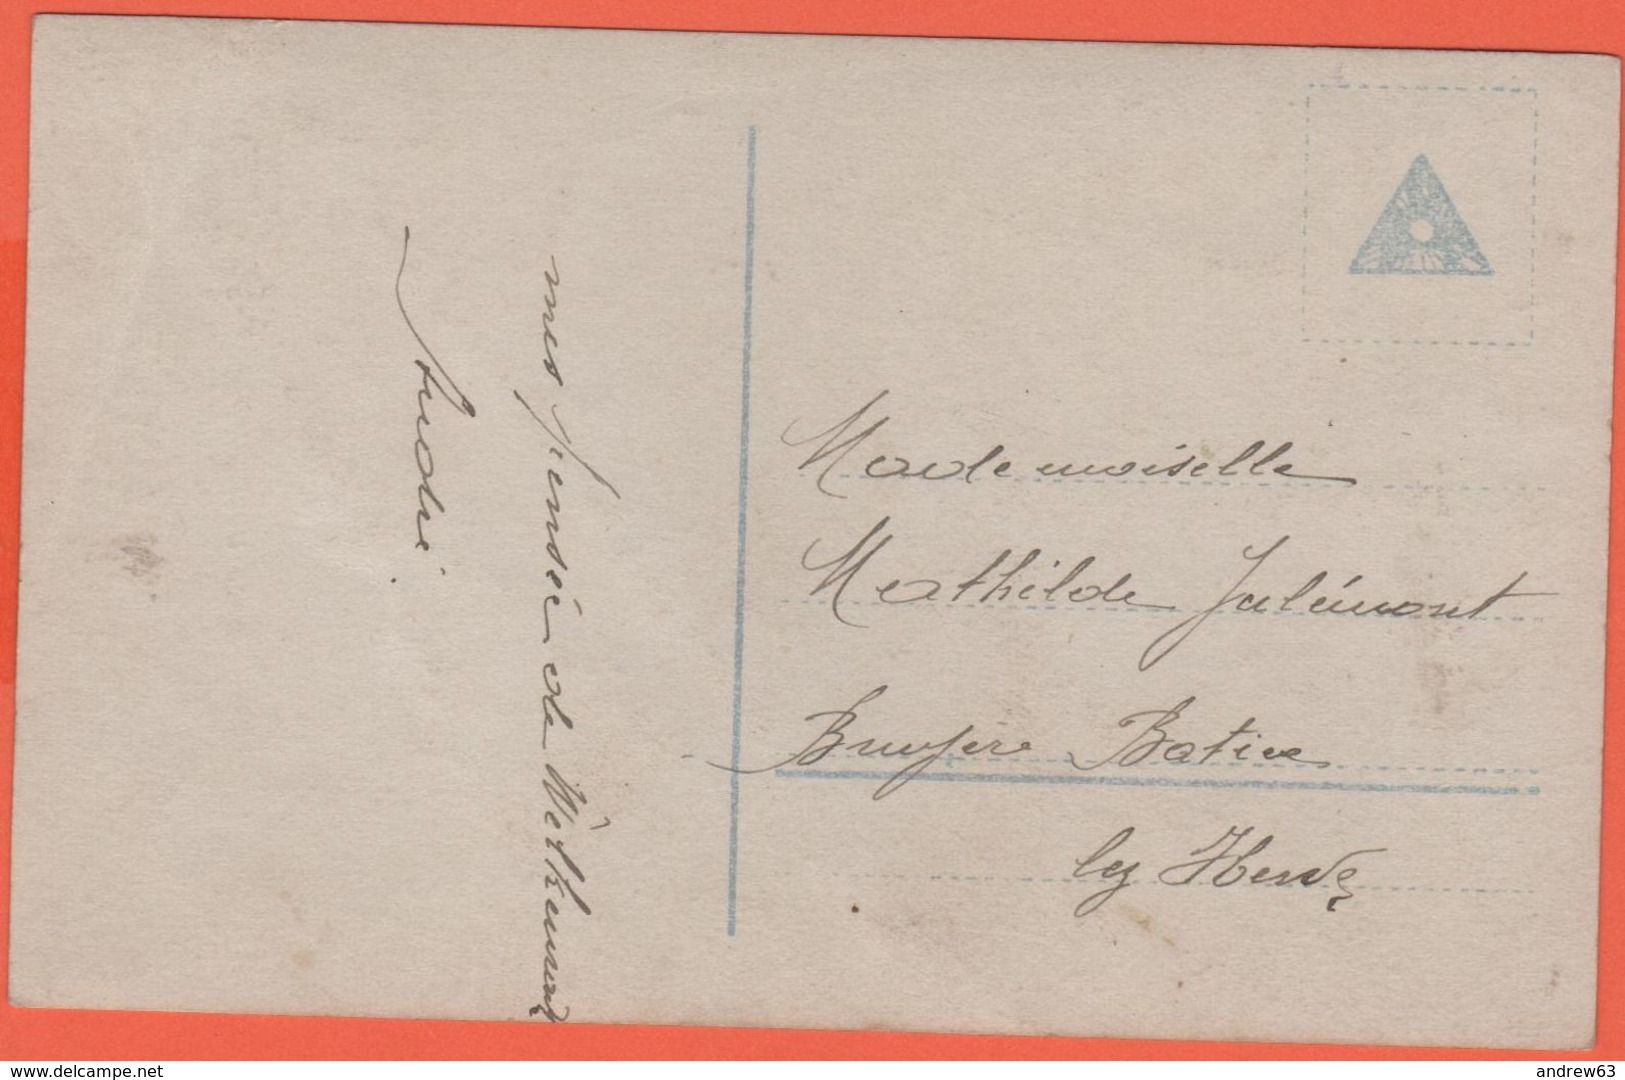 une pensée de Welkenraedt
Mademoiselle
Mathilde Jalémont
Bruyère Batice
lez Herve
www.delcampe.net
andrew63